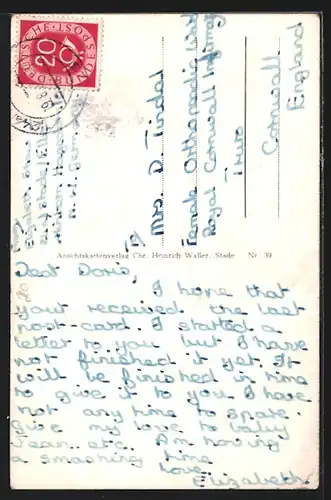 DEUTSCHE BUNDESPOST
20
Mrs. D. Tindal
Female Orthopaedic Ward
Royal Cornwall Infirmary
Truro
Cornwall
England
Ansichtskartenverlag Chr. Heinrich Waller, Stade Nr. 39
Dear Doris,
I hope that
you received the last
post-card. I started a
letter to you but I have
not finished it yet. It
will be finished in time
to give it to you. I have
not any time to spare.
Give my love to
Jean etc. Am having
a smashing time
Love
Elizabeth